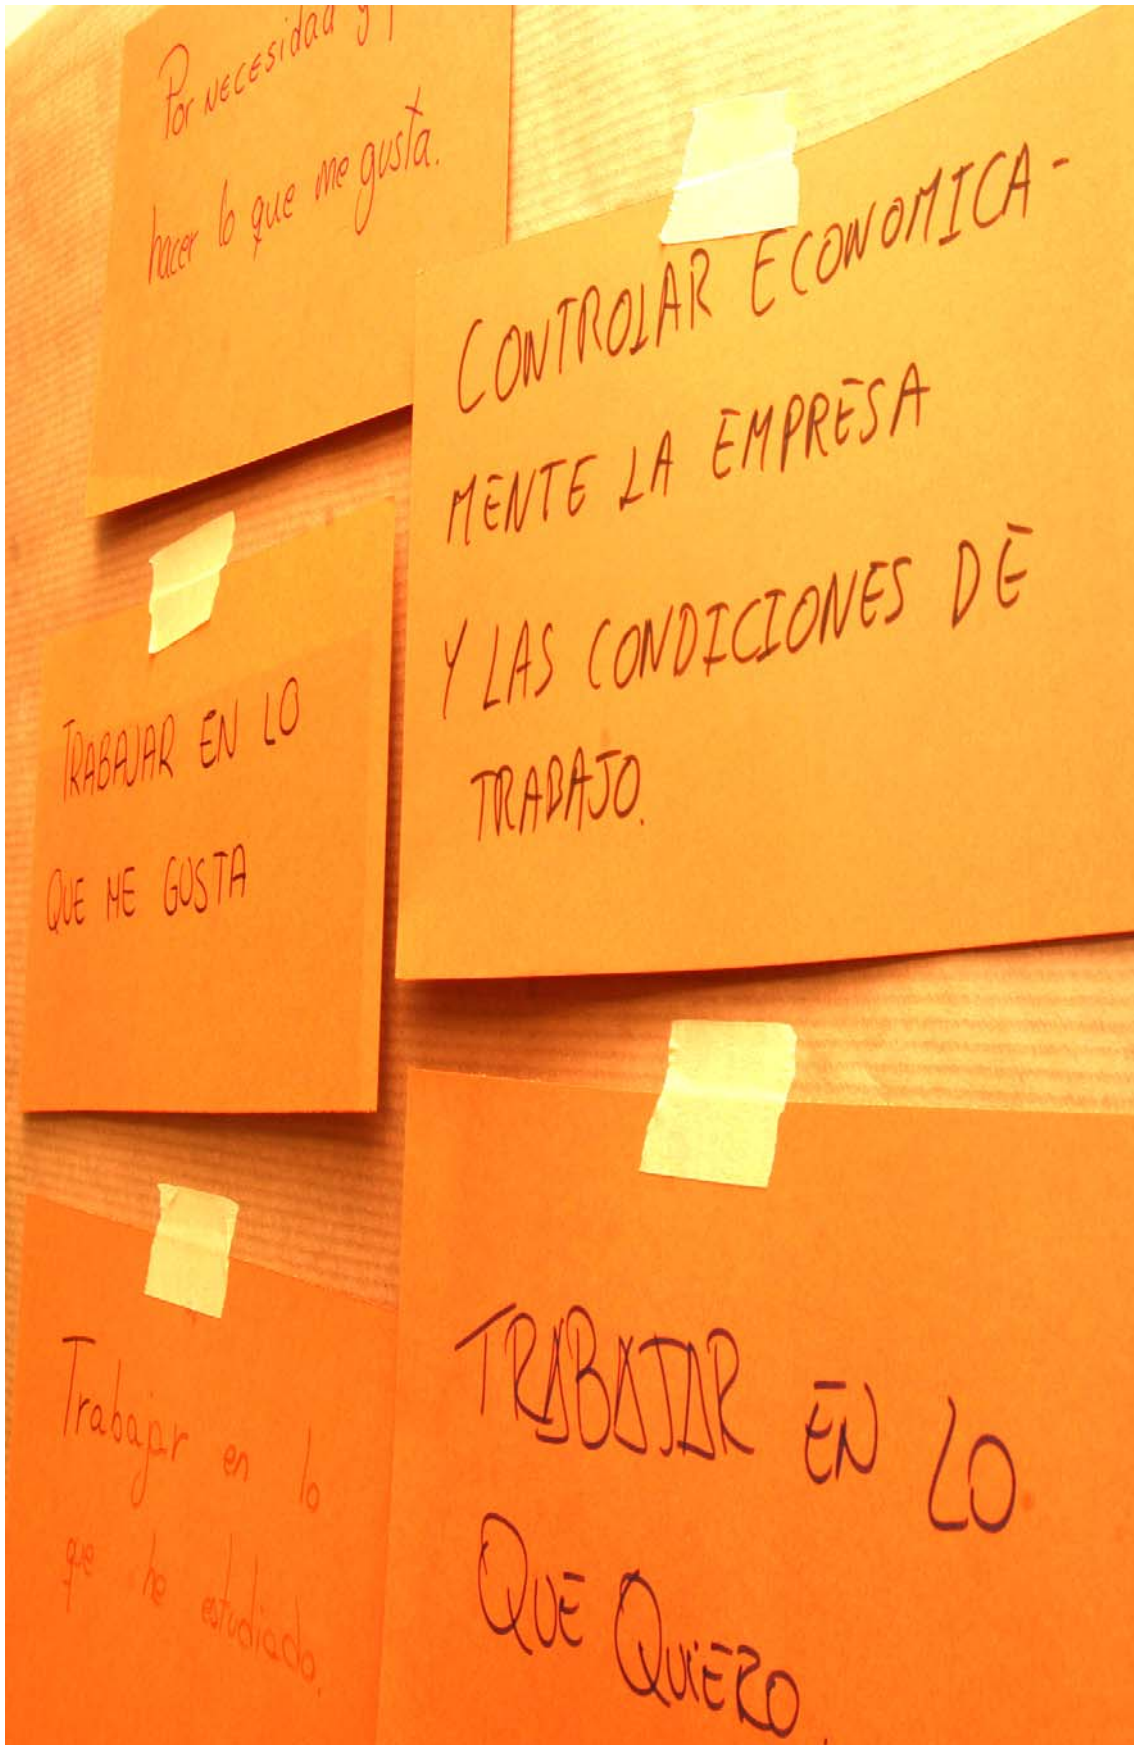 Por NECESIDAD y
hacer lo que me gusta.
CONTROLAR ECONOMICA-
MENTE LA EMPRESA
Y LAS CONDICIONES DE
TRABAJO.
TRABAJAR EN LO
QUE ME GUSTA
Trabajar en lo
que he estudiado.
TRABAJAR EN LO
QUE QUIERO.